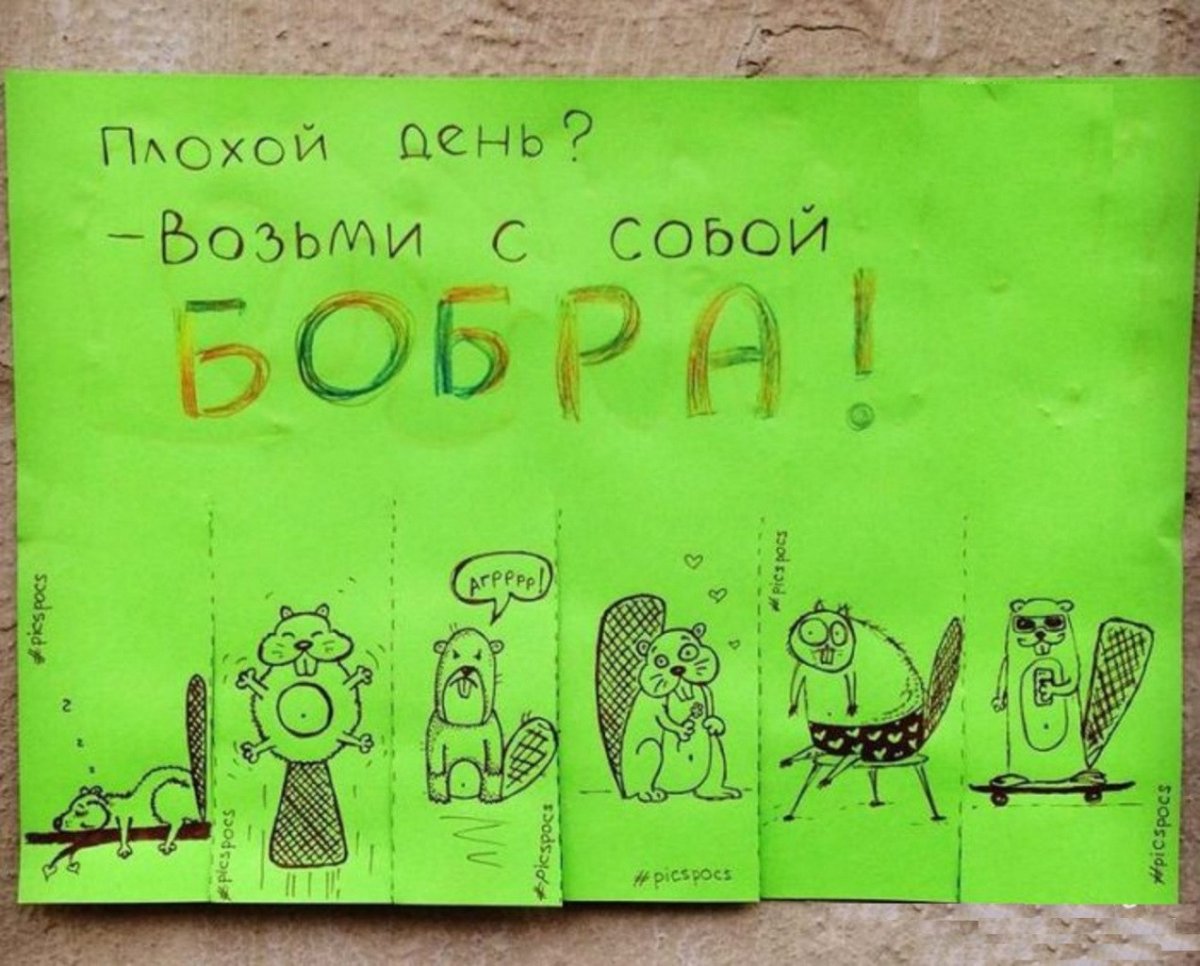 Плохой день?
-Возьми с собой
БОБРА!
Агрррр!
#picspocs
#picspocs
#picspocs
#picspocs
#picspocs
#picspocs
z
z
z